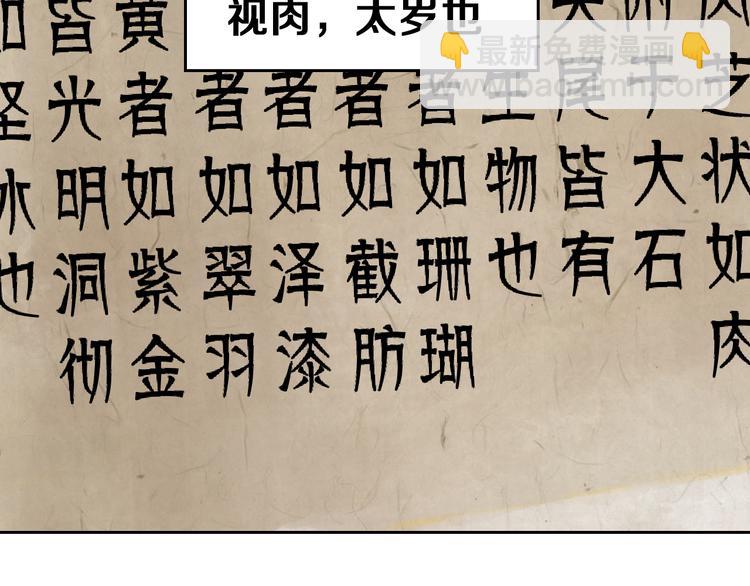 视肉，太岁也
最新免费漫画
www.baozimh.com
肉芝状如肉
附于大石
头尾皆有
生物也
者如珊瑚
者如截肪
者如泽漆
者如翠羽
黄者如紫金
皆光明洞彻
如坚冰也